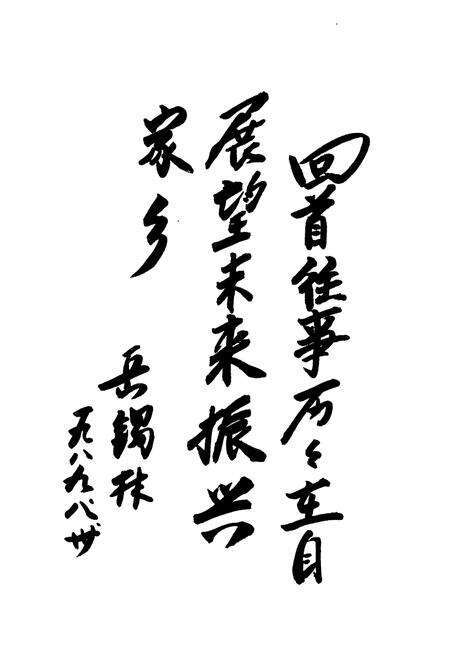 回首往事历々在目
展望未来振兴
家乡
岳锡林
一九八九八卅